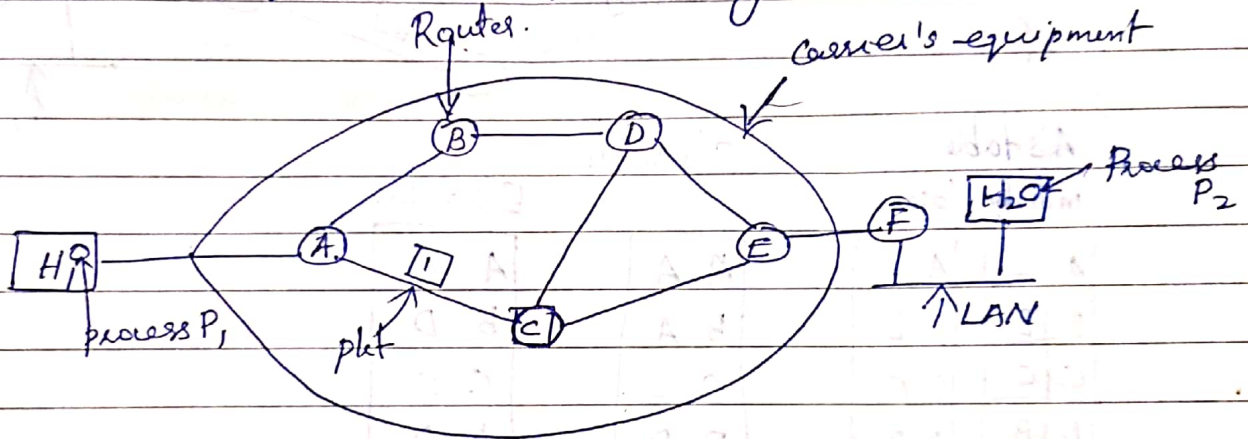 Router.
Carrier's equipment
B
D
Process
P2
H2
F
A
E
H1
1
LAN
process P1
pkt
C